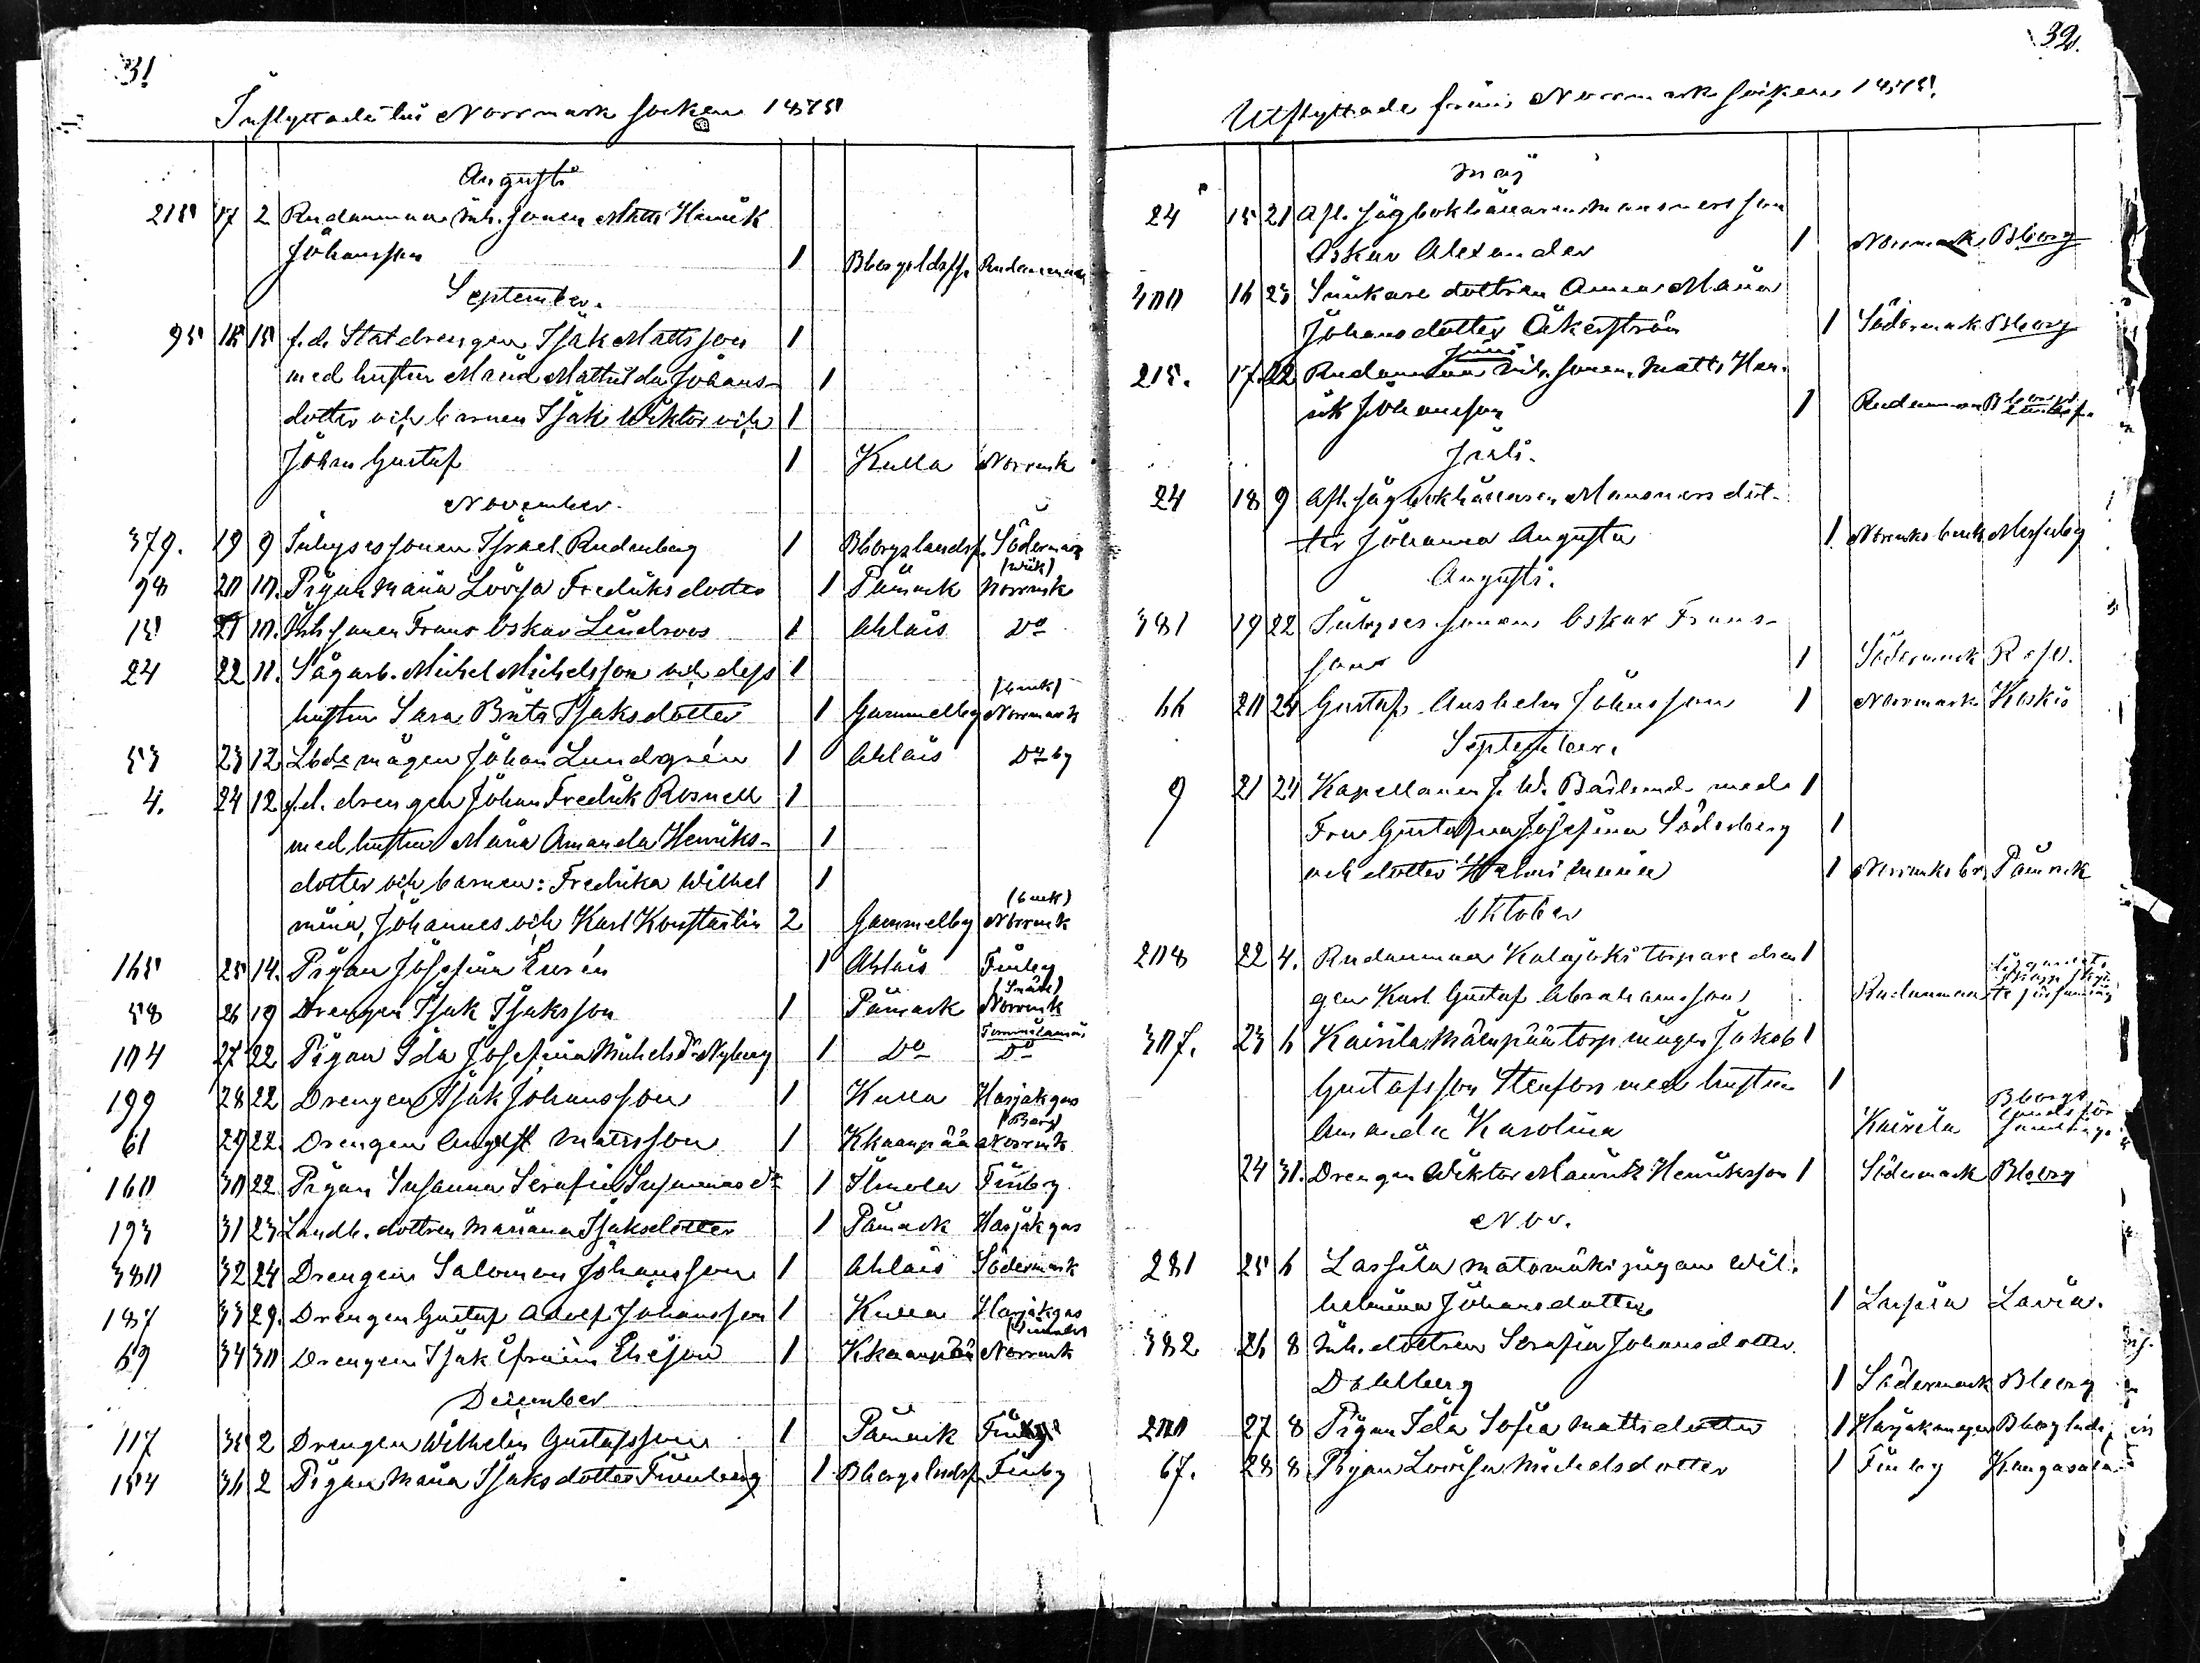 31
Inflyttade till Norrmark socken 1875
Augusti
215 17 2 Rudanmaa inh. sonen Matts Henrik
Johansson 1 Bborgs ldsfs. Rudanmaa
September.
95 18 15 f.d. Statdrengen Isak Mattsson 1
med hustru Maria Mathilda Johans- 1
dotter och barnen Isak Wiktor och 1
Johan Gustaf 1 Kulla Norrmk
November.
379. 19 9 Inhyses sonen Israel Rudenberg 1 Bborgs landsf. Södermark
98 20 10. Pigan Maria Lovisa Fredriksdotter 1 Påmark Norrmk
15 21 10. Inh. sonen Frans Oskar Lindroos 1 Ahlais Do
24 22 11. Sågarb. Michel Michelsson och dess 1
(bruk)
hustru Sara Brita Isaksdotter 1 Gammelby Norrmark
53 23 12 Lbde mågen Johan Lundgrén 1 Ahlais Do by
4. 24 12 f.d. drengen Johan Fredrik Rosnell 1
med hustru Maria Amanda Henriks- 1
dotter och barnen: Fredrika Wilhel 1
(bruk)
mina, Johannes och Karl Konstantin 2 Gammelby Norrmk
165 25 14. Pigan Josefina Eurén 1 Ahlais Finby
58 26 19 Drengen Isak Isaksson 1 Påmark Norrmk
104 27 22 Pigan Ida Josefina Michelsdr Nyberg 1 Do Do
199 28 22 Drengen Isak Johansson 1 Kulla Harjakgas
(Berg)
61 29 22. Drengen August Mattsson 1 Kkaanpää Norrmk
160 30 22 Pigan Susanna Serafia Susannas dr 1 Ilmola Finby
193 31 23 Landb. dottren Mariana Isaksdotter 1 Påmark Harjakgas
380 32 24 Drengen Salomon Johansson 1 Ahlais Södermark
187 33 29. Drengen Gustaf Adolf Johansson 1 Kulla Harjakgas
69 34 30 Drengen Isak Efraim Eliesson 1 Kkaanpää Norrmk
December
117 35 2 Drengen Wilhelm Gustafsson 1 Påmark Finby
154 36 2 Pigan Maria Isaksdotter Finnberg 1 Bborgs lndsf Finby
32.
Utflyttade från Norrmark socken 1875.
Maj
24 15 21 Afl. Sågbokhållaren Mansners son
Oskar Alexander 1 Norrmark Bborg
300 16 23 Snickare dottren Anna Maria
Johansdotter Åkerström 1 Södermark Bborg
Juni
215. 17. 22 Rudanmaa inh. sonen Matts Hen-
rik Johansson 1 Rudanmaa Bborgs landsf.
Juli.
24 18 9 Afl. sågbokhållaren Mansners dot-
ter Johanna Augusta 1 Norrmks bruk
Augusti.
381 19 22 Inhyses sonen Oskar Frans-
son 1 Södermark
66 20 24 Gustaf Anshelm Johansson 1 Norrmark Koskis
September.
9 21 24 Kapellanen J. W. Bärlund med 1
Fru Gustafva Josefina Söderberg 1
och dotter Hilma Maria 1 Norrmks br. Påmark
Oktober
208 22 4. Rudanmaa Kalajoki torpare dren 1
gen Karl Gustaf Abrahamsson Rudanmaa
307. 23 6 Kairila Mäenpää torp. mågen Jakob 1
Gustafsson Stenfors med hustru 1
Amanda Karolina Kairila Bborgs landsför samlinge
24 31. Drengen Wiktor Maurits Henriksson 1 Södermark Bborg
Nov.
281 25 6 Lassila Matomäki pigan Wil-
helmina Johansdotter 1 Lassila Lavia.
382 26 8 Inh. dottren Serafia Johansdotter
Dahlberg 1 Södermark Bborg
200 27 8 Pigan Ida Sofia Mattsdotter 1 Harjakangas Bborg lndsf
67. 28 8 Pigan Lovisa Michelsdotter 1 Finby Kangasala